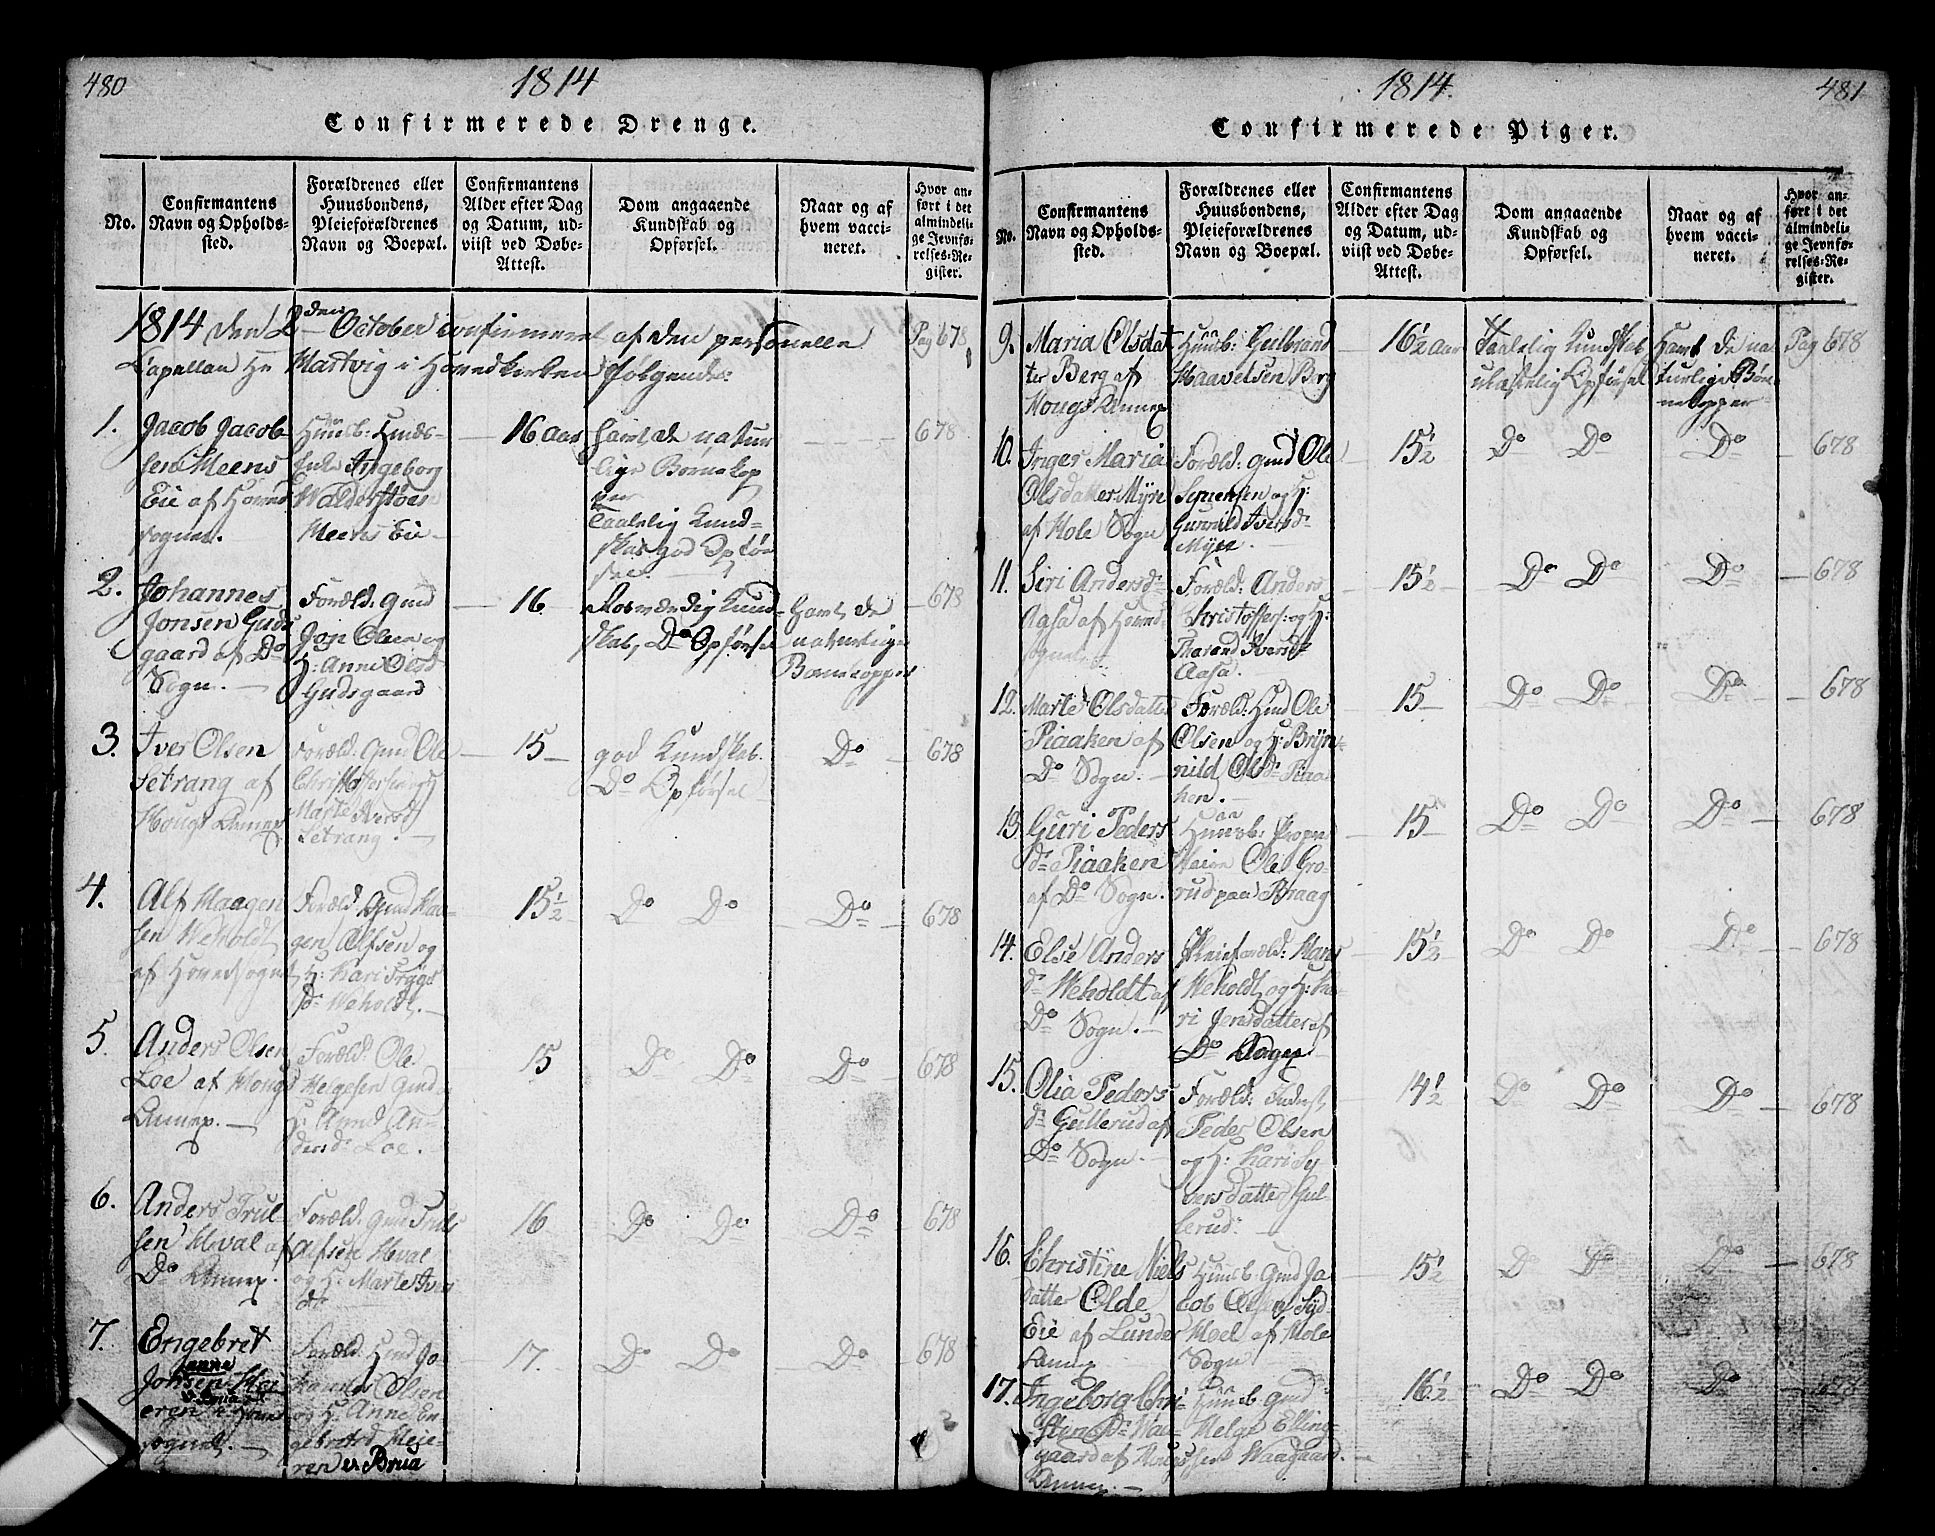 480
1814
Confirmerede Drenge.
No.
Confirmantens
Navn og Opholds-
sted.
Forældrenes eller
Huusbondens,
Pleieforældrenes
Navn og Boepæl.
Confirmantens
Alder efter Dag
og Datum, ud-
viist ved Døbe-
Attest.
Dom angaaende
Kundskab og
Opførsel.
Naar og af
hvem vacci-
neret.
Hvor an-
ført i det
almindeli-
ge Jevnfø-
relses-Re-
gister.
1814 den 2den October confirmeret af den personelle
Capellan Hr Hartvig i Hovedkirken følgende:
Pag 678
1.
Jacob Jacob-
sen Meens
Eie af Hoved
sognet.
Huusb:
Ingeborg
Meens Eie
16 aar
havt de natur
lige Børnekop
per
Taalelig Kund-
skab god Opfør
sel.
678
2.
Johannes
Jonsen Guds
gaard af Do
Sogn.
Foræld: Gmd
Jon Olsen og
H: Anne Olsd
Gudsgaard
16
Roesværdig Kund
skab, Do Opførsel
havt de
naturlige
Børnekopper
678
3.
Iver Olsen
Setrang af
Hougs Annex
Foræld: Gmd Ole
Christophersen og
Marte Iversd
Setrang.
15
god Kundskab.
Do Opførsel
Do
678
4.
Alf Haagen
sen Weholdt
af Hovedsognet
Foræld: Gmd Haa-
gen Alfsen og
H: Kari Trygs
dr Weholdt.
15 1/2
Do Do
Do
678
5.
Anders Olsen
Loe af Hougs
Annex.
Foræld: Ole
Helgesen Gmd
H: Anne An-
dersdr Loe.
15
Do Do
Do
678
6.
Anders Trul-
sen Hval af
Do Annex.
Foræld: Gmd Truls
Alfsen Hval
og H: Marte Ivers
dr
16
Do Do
Do
678
7.
Engebret
Johanne
Jonsen Mei
v. Brua
eren i Hoved
sognet.
Foræld: Hmd Jo-
hannes Olsen
og H: Anne En
gebretsd Meie-
ren v. Brua
17.
Do Do
Do
678
1814.
481
Confirmerede Piger.
No.
Confirmantens
Navn og Opholds-
sted.
Forældrenes eller
Huusbondens,
Pleieforældrenes
Navn og Boepæl.
Confirmantens
Alder efter Dag
og Datum, ud-
viist ved Døbe-
Attest.
Dom angaaende
Kundskab og
Opførsel.
Naar og af
hvem vacci-
neret.
Hvor an-
ført i det
almindeli-
ge Jevnfø-
relses-Re-
gister.
9.
Maria Olsdat
ter Berg af
Hougs Annex
Huusb: Gulbrand
Haavelsen Berg
16 1/2 aar
Taalelig Kundskab
ulastelig Opførsel
Havt de na
turlige Bør
nekopper
Pag 678
10.
Inger Maria
Olsdatter Myre
af Hole Sogn
Foræld: Gmd Ole
Syvertsen og H:
Gunild Iversdr
Myre.
15 1/2
Do Do
Do
678
11.
Siri Andersdr
Aasa af Hoved
sognet
Foræld: Anders
Christoffers: og H:
Iversdr
Aasa.
15 1/2
Do Do
Do
678
12.
Marte Olsdatter
Piaaken af
Do Sogn.
Foræld: Hmd Ole
Olsen og H: Bryn-
nild Olsdr Piaa
ken.
15
Do Do
Do
678
13.
Guri Peders
dr Piaaken
af Do Sogn.
Huusb:
Ole Gro-
rud paa Braag
15
Do Do
Do
678
14.
Else Anders
dr Weholdt af
Do Sogn.
Pleieforæld: Hans
Weholdt og H: Ka-
ri Jensdatter af
Do Annex
15 1/2
Do Do
Do
678
15.
Olia Peders
dr Gullerud af
Do Sogn.
Foræld: Inderst
Peder Olsen
og H: Kari Sy
versdatter Gul-
lerud.
4 1/2
Do Do
Do
678
16.
Christine Niels
datter Olde
Eie af Lunder
Annex
Huusb. Gmd Ja
cob Olsen
Moe af Hole
Sogn
15 1/2
Do Do
Do
678
17.
Ingeborg Chri-
stensdr Waa-
gaard af Hougs
Annex.
Huusb. Gmd
Helge Elling
sen Waagaard.
16 1/2
Do Do
Do
678